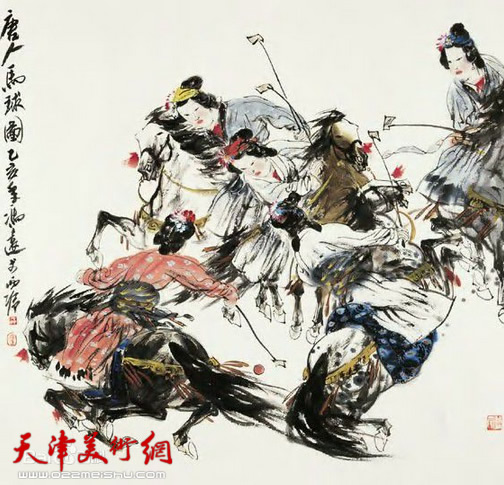 唐人馬球圖乙亥年馮遠
天津美術網
www.022meishu.com